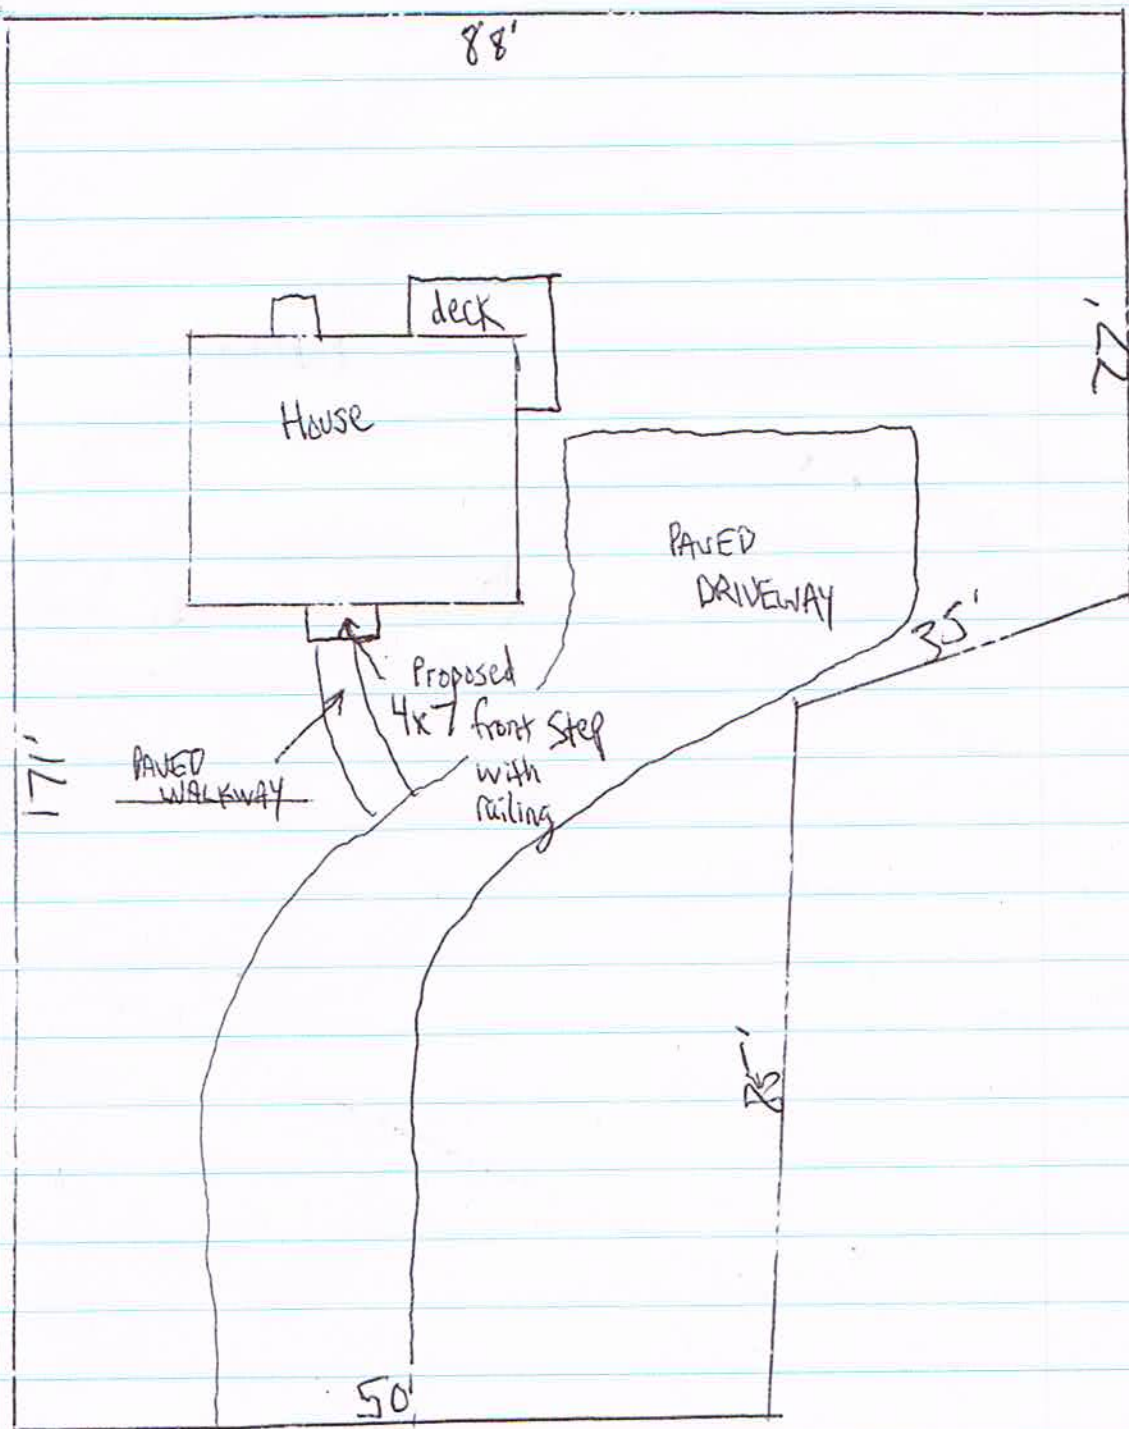 88'
deck
House
PAVED
DRIVEWAY
35'
Proposed
4x7 front step
with
railing
PAVED
WALKWAY
171'
50'